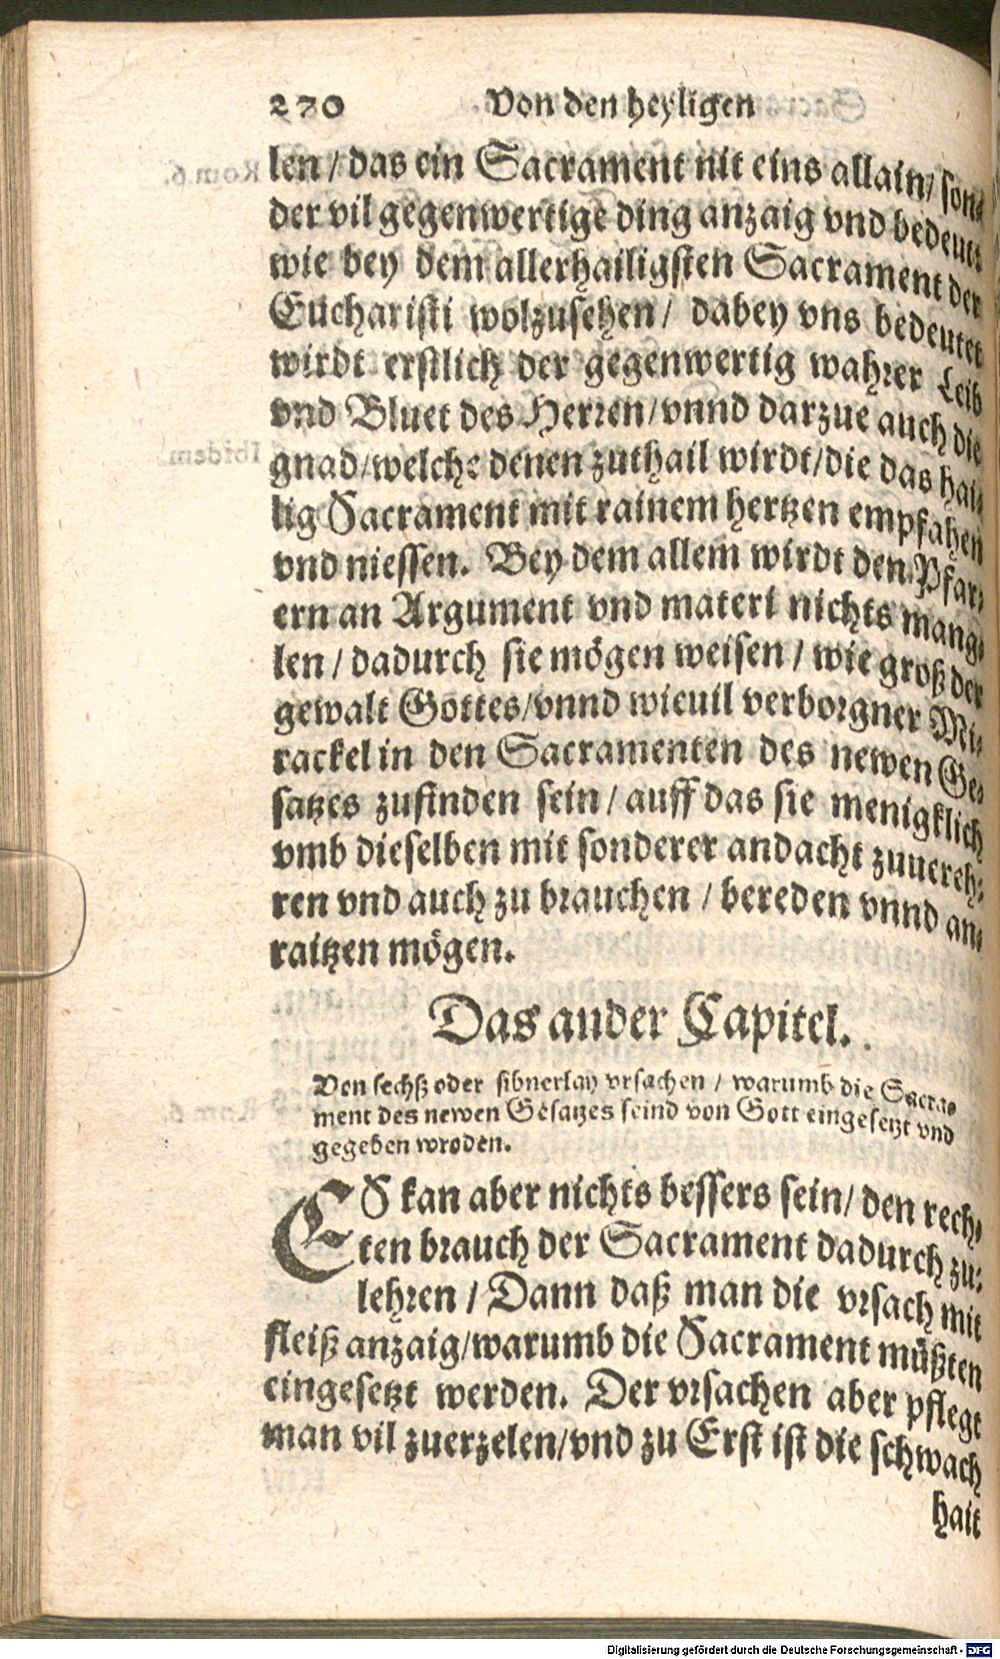 270 Von den heyligen
len / das ein Sacrament nit eins allain / son⸗
der vil gegenwertige ding anzaig vnd bedeut⸗
wie bey dem allerhailigsten Sacrament der
Eucharisti wolzusehen / dabey vns bedeutet
wirdt erstlich der gegenwertig wahrer Leib
vnd Bluet des Herren / vnnd darzue auch die
gnad / welche denen zuthail wirdt / die das hai⸗
lig Sacrament mit rainem hertzen empfahen
vnd niessen. Bey dem allem wirdt den Pfar⸗
ern an Argument vnd materi nichts mang⸗
len / dadurch sie mögen weisen / wie groß der
gewalt Gottes / vnnd wieuil verborgner Mi⸗
rackel in den Sacramenten des newen Ge⸗
satzes zufinden sein / auff das sie menigklich
vmb dieselben mit sonderer andacht zuuereh⸗
ren vnd auch zu brauchen / bereden vnnd an⸗
raitzen mögen.
Das ander Capitel.
Von sechß oder sibnerlay vrsachen / warumb die Sacra⸗
ment des newen Gesatzes seind von Gott eingesetzt vnd
gegeben wroden.
ES kan aber nichts bessers sein / den rech⸗
ten brauch der Sacrament dadurch zu⸗
lehren / Dann daß man die vrsach mit
fleiß anzaig / warumb die Sacrament müßten
eingesetzt werden. Der vrsachen aber pflegt
man vil zuerzelen / vnd zu Erst ist die schwach
hait
Digitalisierung gefördert durch die Deutsche Forschungsgemeinschaft - DFG